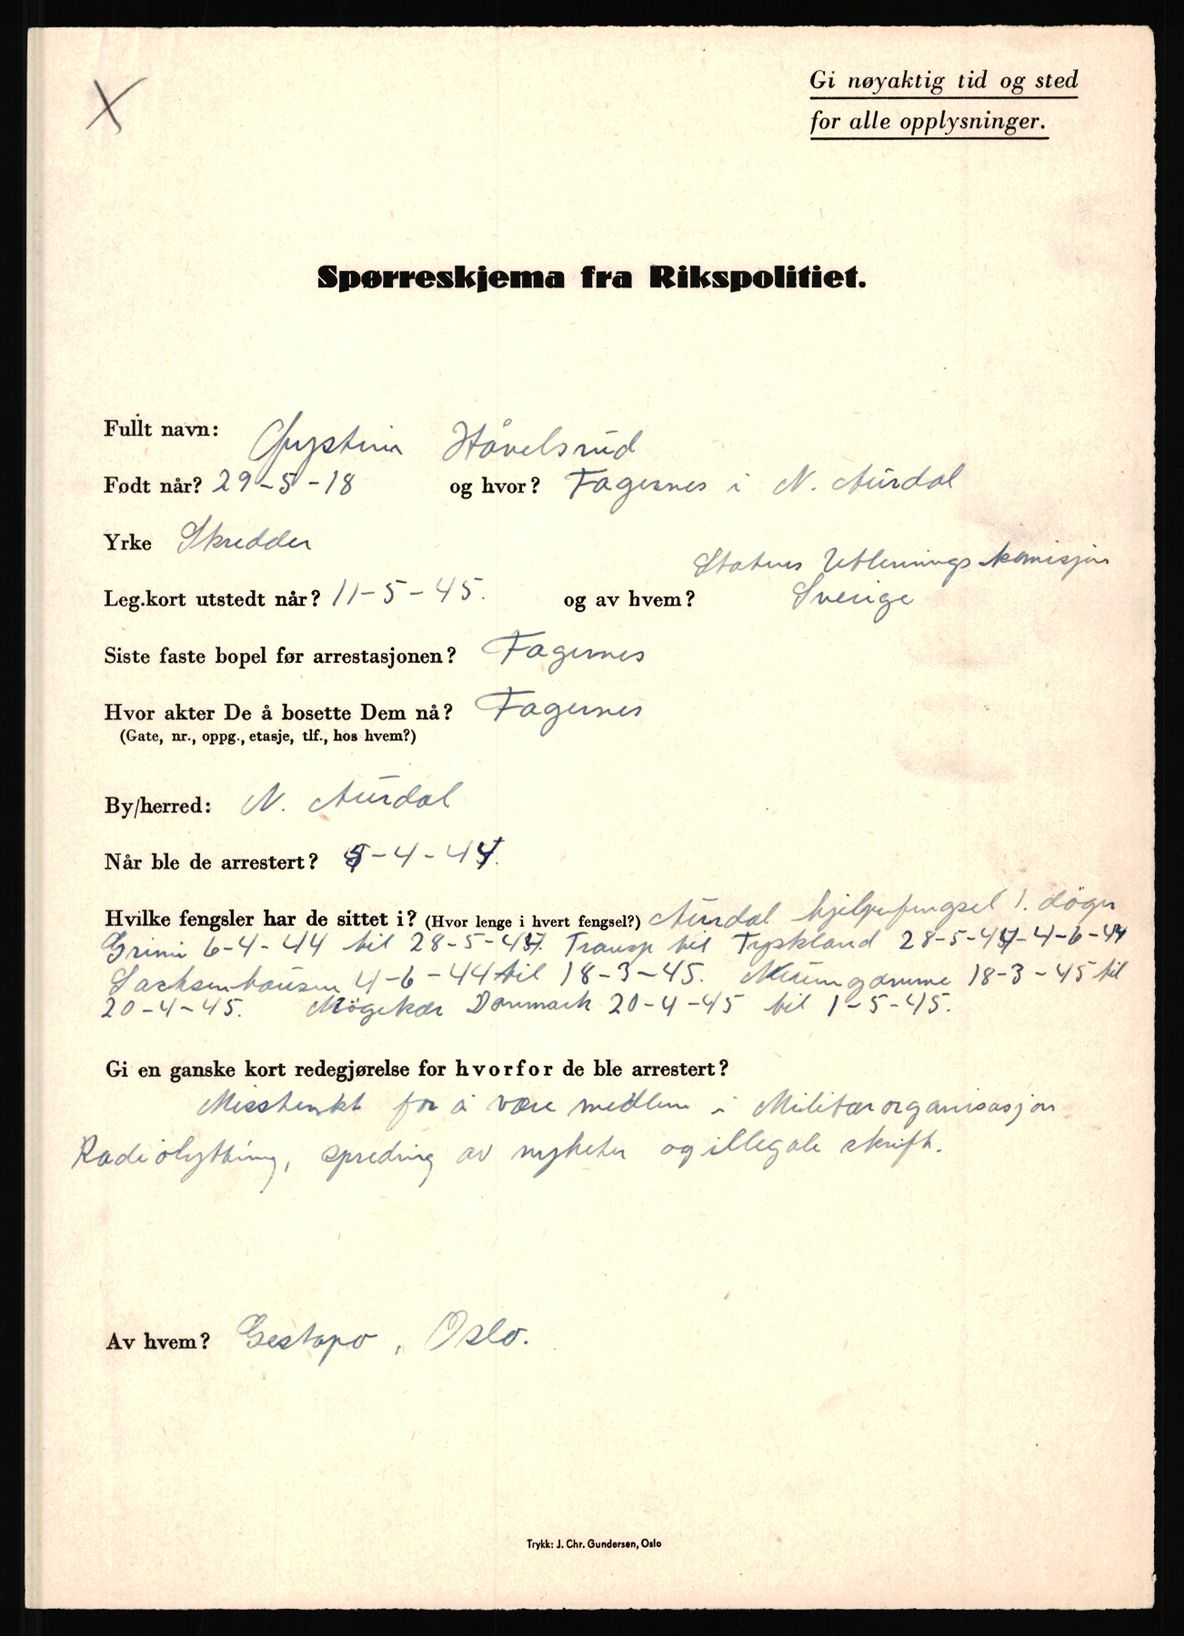 X
Gi nøyaktig tid og sted
for alle opplysninger.
Spørreskjema fra Rikspolitiet.
Fullt navn: Øystein Håvelsrud
Født når? 29-5-18 og hvor? Fagernes i N. Aurdal
Yrke Skredder
Statens Utlennings-komisjon
Leg.kort utstedt når? 11-5-45. og av hvem? Sverige
Siste faste bopel før arrestasjonen? Fagernes
Hvor akter De å bosette Dem nå? Fagernes
(Gate, nr., oppg., etasje, tlf., hos hvem?)
By/herred: N. Aurdal
Når ble de arrestert? 5-4-44.
Hvilke fengsler har de sittet i? (Hvor lenge i hvert fengsel?) Aurdal hjelpefengsel 1. døgn
Grini 6-4-44 til 28-5-44. Transp til Tyskland 28-5-44-4-6-44
Sachsenhausen 4-6-44 til 18-3-45. Neuengamme 18-3-45 til
20-4-45. Møgekær Danmark 20-4-45 til 1-5-45.
Gi en ganske kort redegjørelse for hvorfor de ble arrestert?
Misstenkt for å være medlem i Militærorganisasjon
Radiolytting, spredning av nyheter og illegale skrift.
Av hvem? Gestapo, Oslo.
Trykk: J. Chr. Gundersen, Oslo